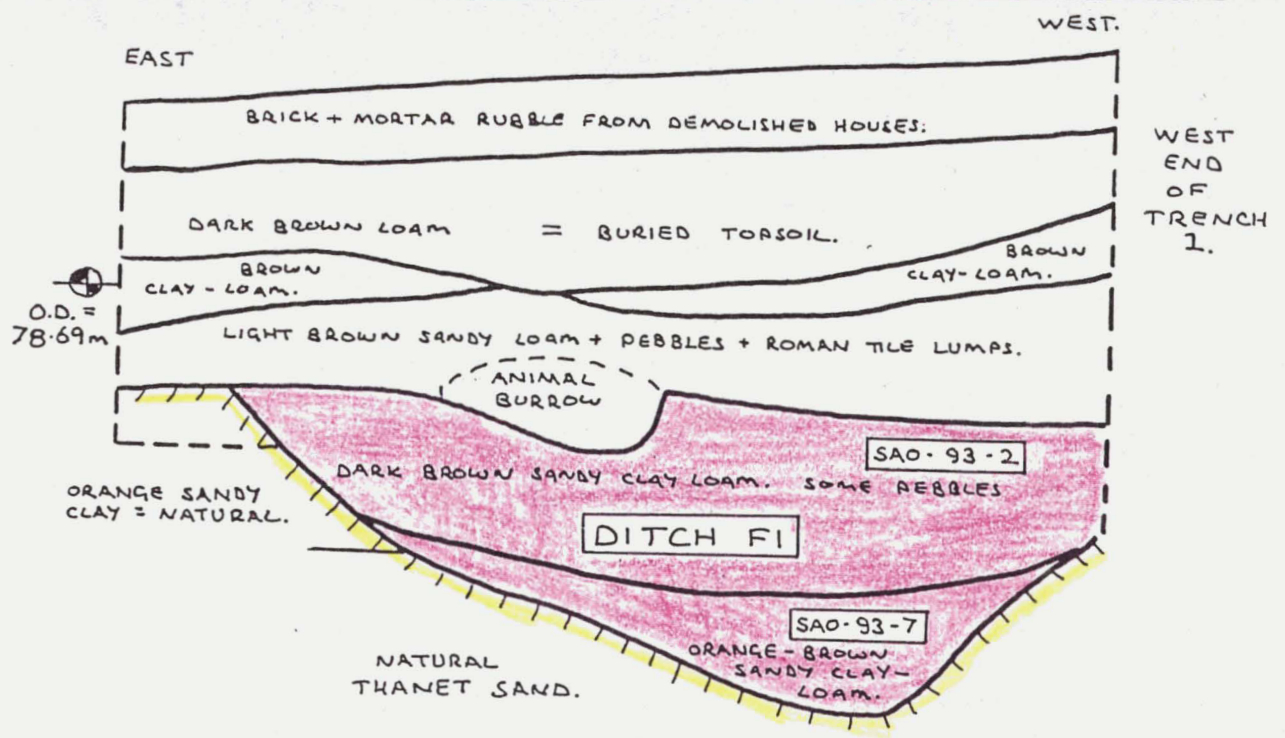 WEST.
EAST
BRICK + MORTAR RUBBLE FROM DEMOLISHED HOUSES.
WEST
END
OF
TRENCH
1.
DARK BROWN LOAM = BURIED TOPSOIL.
BROWN
CLAY-LOAM.
BROWN
CLAY-LOAM.
O.D. =
78.69m
LIGHT BROWN SANDY LOAM + PEBBLES + ROMAN TILE LUMPS.
ANIMAL
BURROW
SAO-93-2
DARK BROWN SANDY CLAY LOAM. SOME PEBBLES
ORANGE SANDY
CLAY = NATURAL.
DITCH F1
SAO-93-7
ORANGE-BROWN
SANDY CLAY-
LOAM.
NATURAL
THANET SAND.